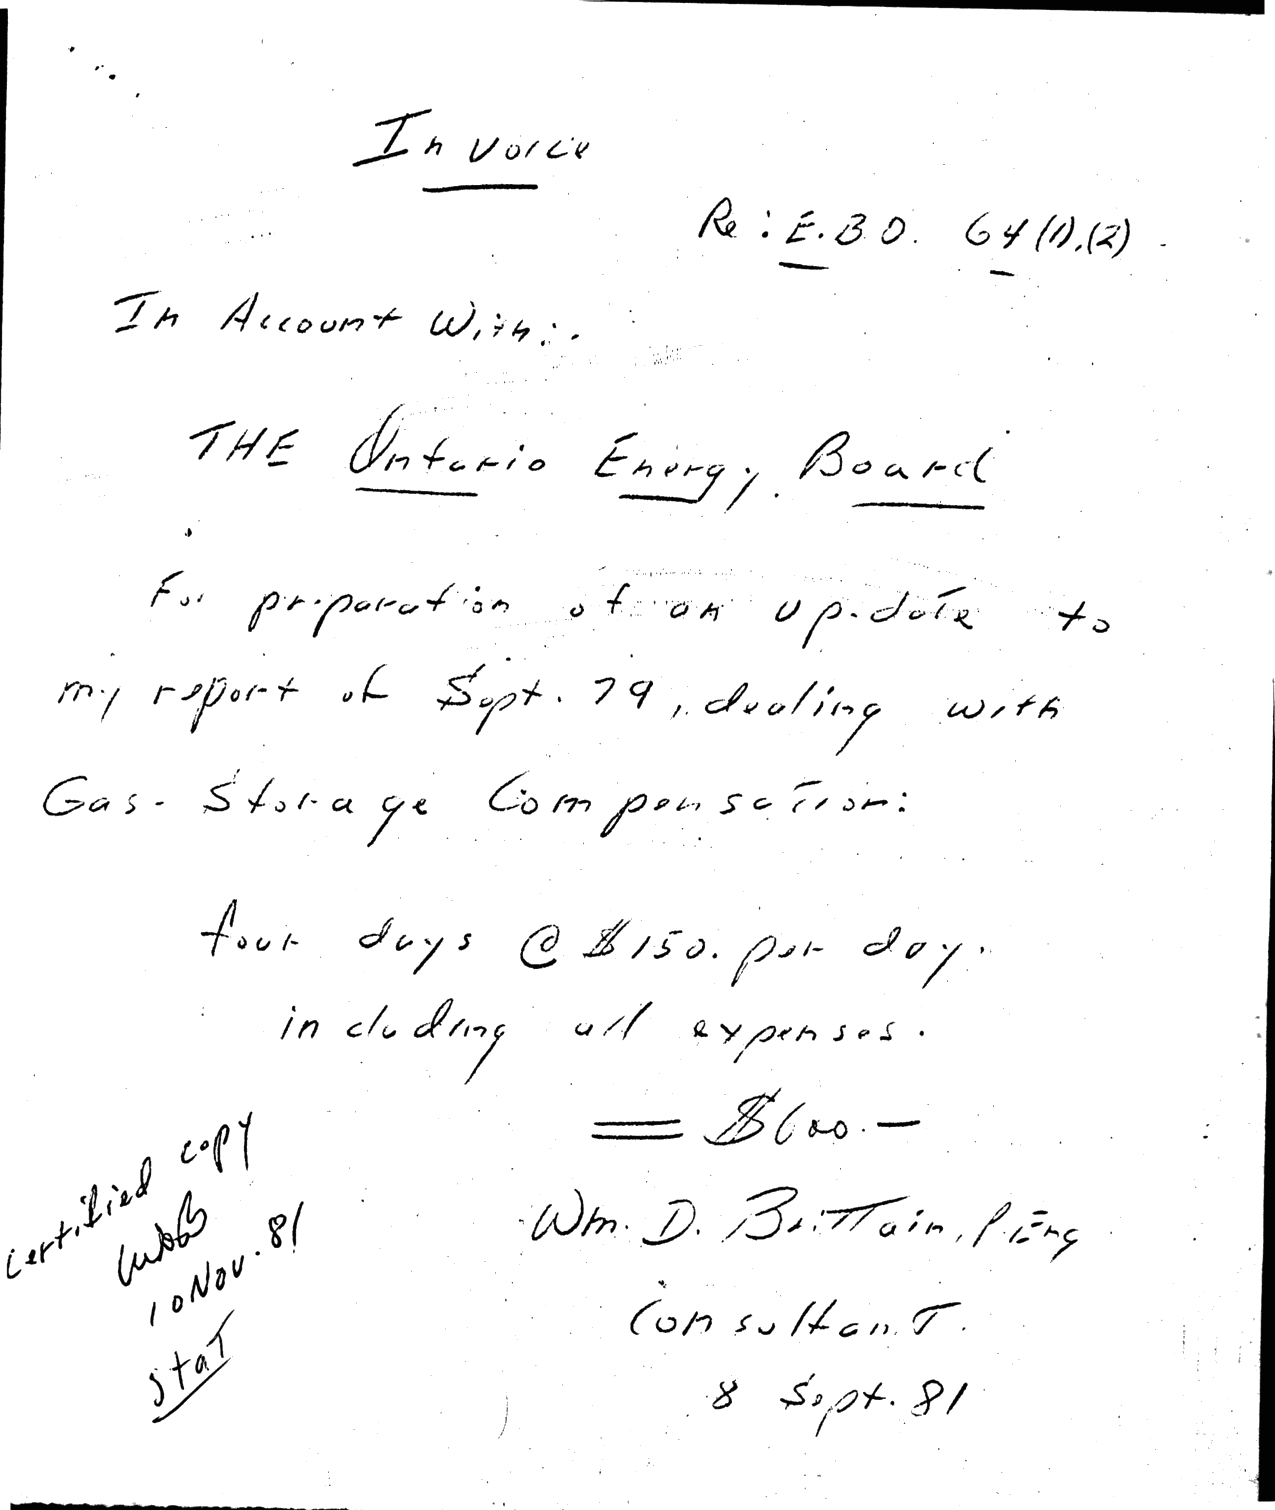 Invoice
Re: E.B.O. 64(1),(2)
In Account With:.
THE Ontario Energy Board
For preparation of an up-date to
my report of Sept. 79, dealing with
Gas-Storage Compensation:
four days @ $150. per day.
including all expenses.
= $600.—
Wm. D. Brittain, P.Eng
Consultant.
8 Sept. 81
certified copy
WDB
10 Nov. 81
Stat